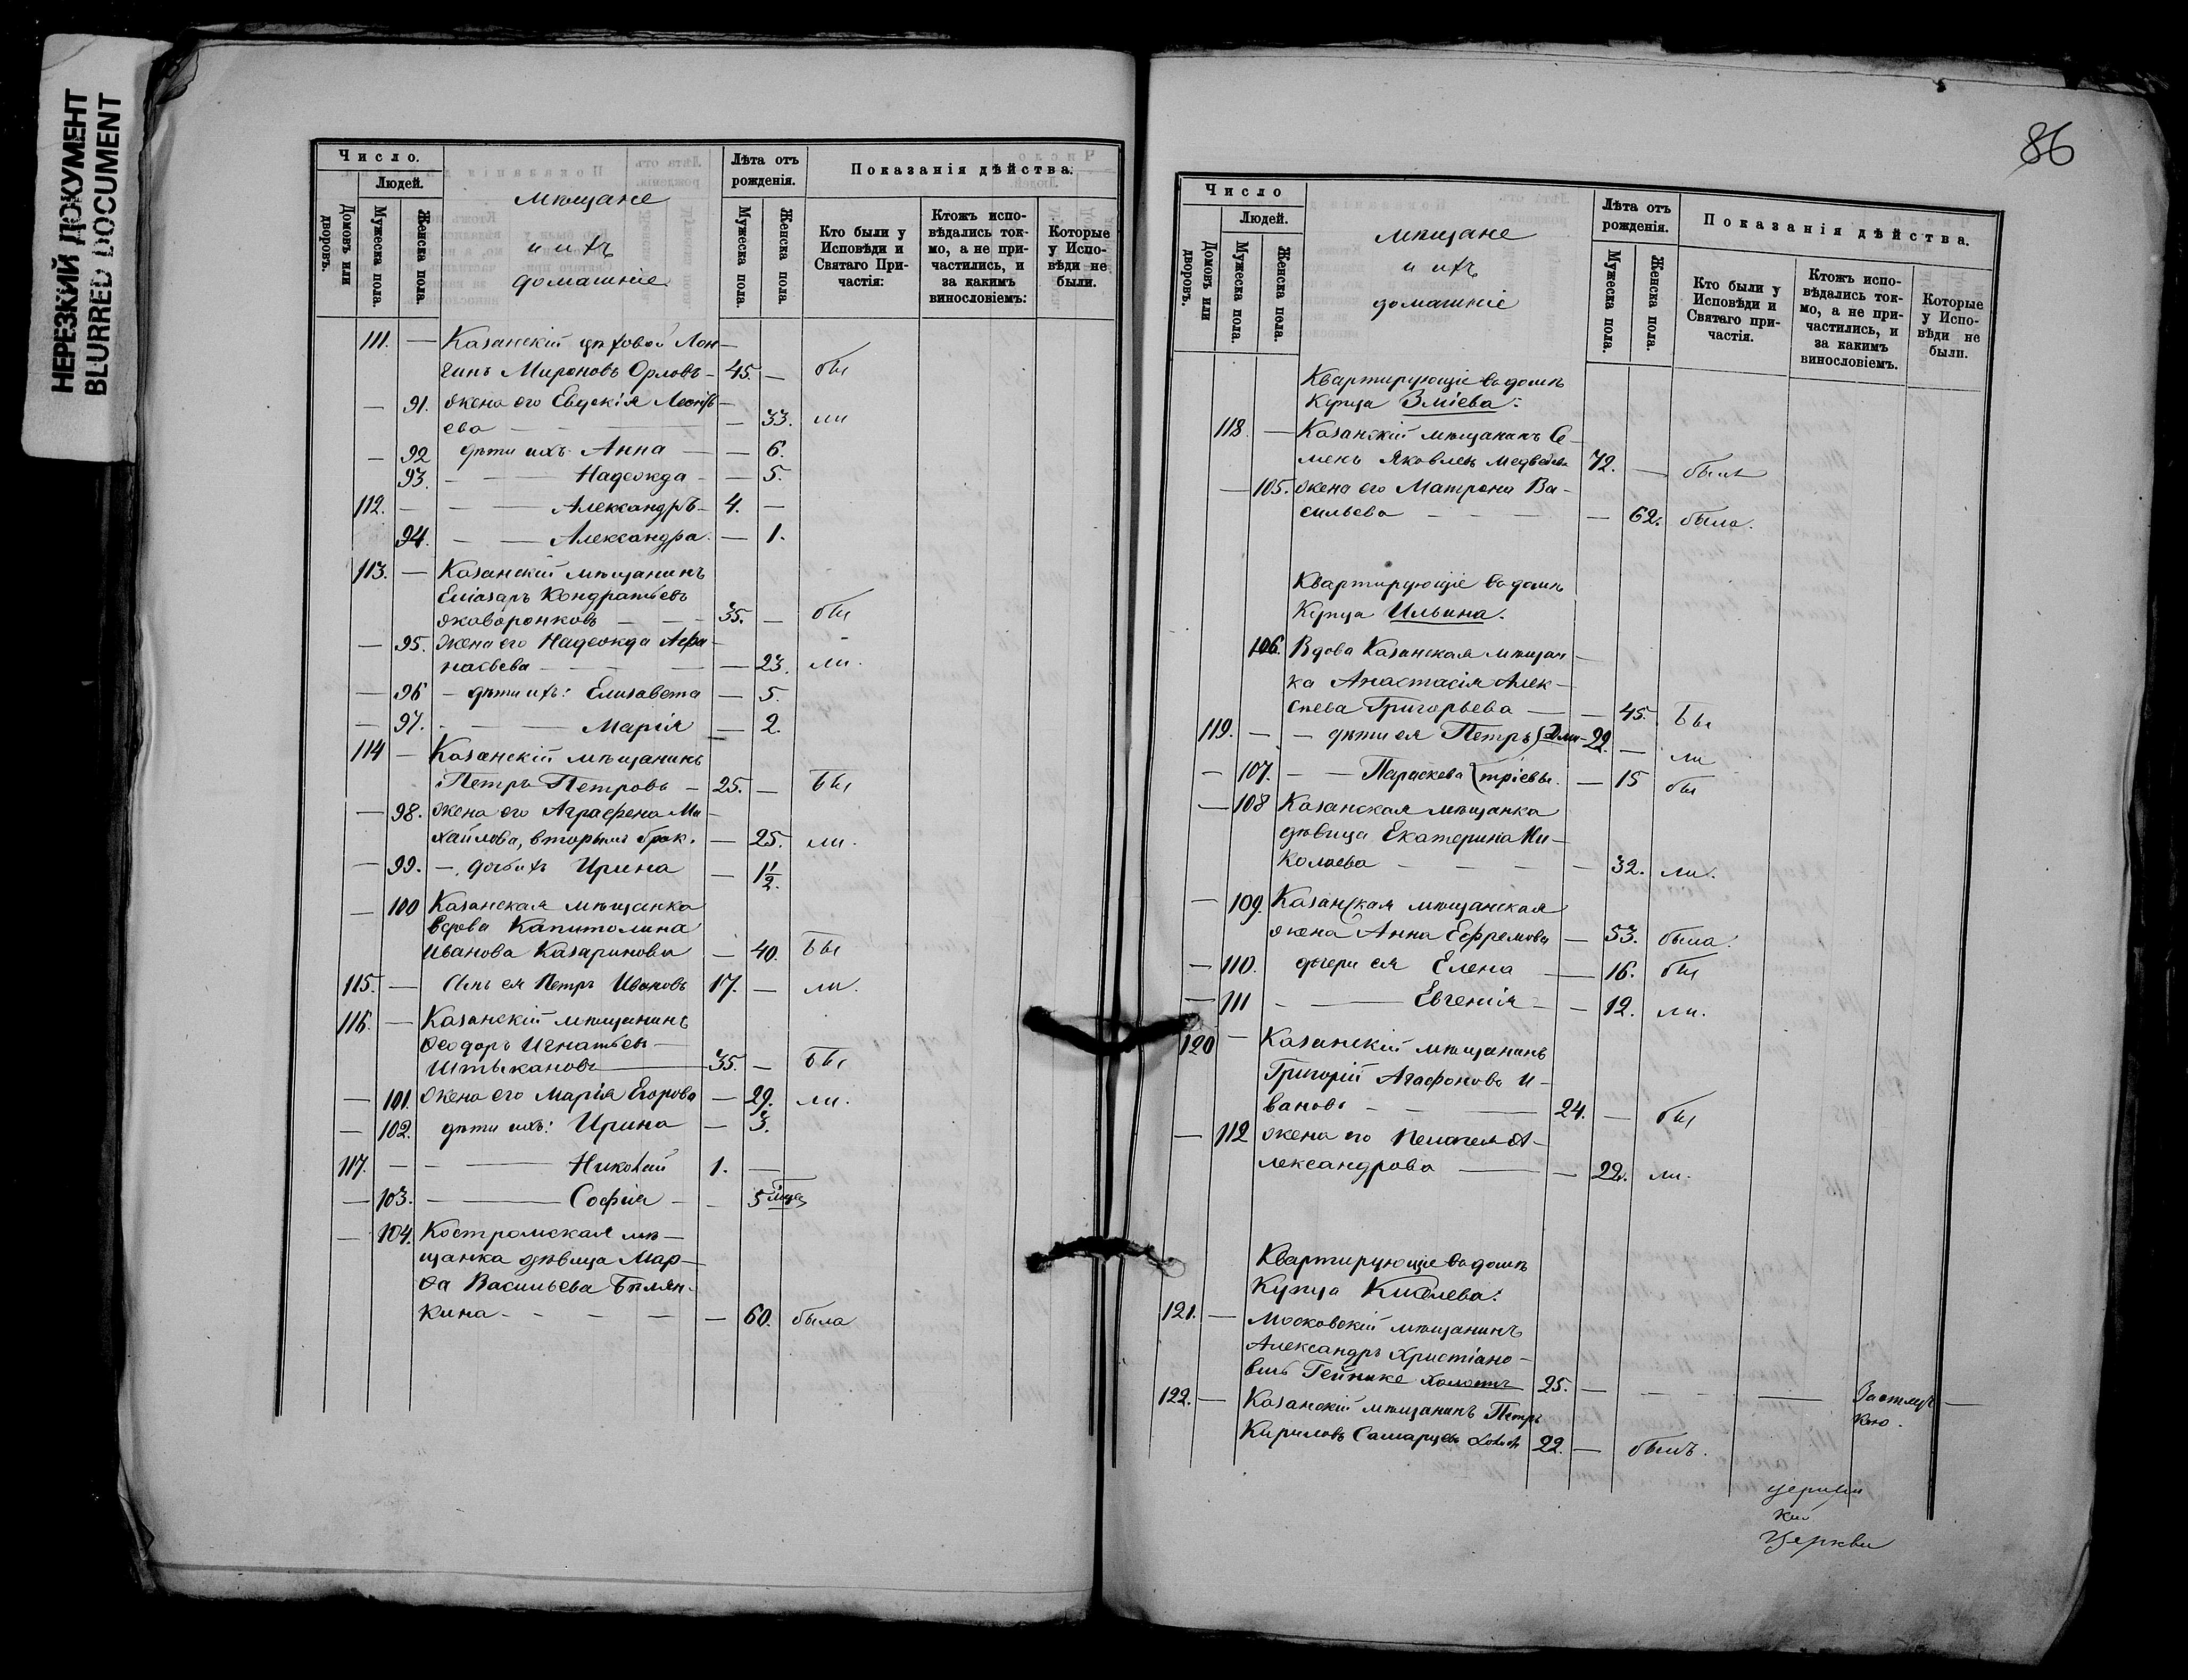 НЕРЕЗКИЙ ДОКУМЕНТ
BLURRED DOCUMENT
Число.
Людей.
Домовъ или дворовъ.
Мужеска пола.
Женска пола.
мѣщане
и ихъ
домашніе
Лѣта отъ рожденія.
Мужеска пола.
Женска пола.
Показанія дѣйства.
Кто были у Исповѣди и Святаго Причастія:
Ктожъ исповѣдались токмо, а не причастились, и за какимъ винословіемъ:
Которые у Исповѣди не были.
111. — Казанскій цеховой Лон—
гинъ Мироновъ Орловъ — 45. — бы
— 91. жена его Евдокія Леонть—
ева — 33. ли
— 92 дѣти ихъ: Анна — — 6.
93. — — Надежда — — 5.
112. — — — Александръ — 4. —
94. — — Александра. — 1.
113. — Казанскій мѣщанинъ
Еліазаръ Кондратьевъ
Жаворонковъ — — 35. — бы
— 95. Жена его Надежда Афа—
насьева — — — 23. ли.
— 96 — дѣти ихъ: Елисавета — 5.
— 97. — — Марія — 2.
114 — Казанскій мѣщанинъ
Петръ Петровъ — 25. — бы
— 98. Жена его Аграфена Ми—
хайлова, вторымъ брак. — 25. ли.
— 99. — дочь ихъ Ирина — 1½.
— 100 Казанская мѣщанка
вдова Капитолина
Иванова Казаринова — 40. бы
115. — Сынъ ея Петръ Ивановъ 17. — ли.
116. — Казанскій мѣщанинъ
Ѳеодоръ Игнатьевъ —
Штыкановъ — 35. — бы
— 101. Жена его Марія Егорова — 29. ли.
— 102. дѣти ихъ: Ирина — 3.
117. — — — Николай 1. —
— 103. — — София — — 5 мѣс
— 104. Костромская мѣ—
щанка дѣвица Мар—
ѳа Васильева Бѣлян-
кина — — — — 60. была
86
Число
Людей.
Домовъ или дворовъ.
Мужеска пола.
Женска пола.
мѣщане
и ихъ
домашніе
Лѣта отъ рожденія.
Мужеска пола.
Женска пола.
Показанія дѣйства.
Кто были у Исповѣди и Святаго причастія.
Ктожъ исповѣдались токмо, а не причастились, и за какимъ винословіемъ.
Которые у Исповѣди не были.
Квартирующіе въ домѣ
Купца Зміева:
118. — Казанскій мѣщанинъ Се—
менъ Яковлевъ Медведевъ 72. — былъ
— 105. жена его Матрона Ва—
сильева — — — 62. была.
Квартирующіе въ домѣ
Купца Ильина.
106. Вдова Казанская мѣщан—
ка Анастасія Алек—
сѣева Григорьева — — 45. бы
119. — — дѣти ея Петръ } Дми- 22. — ли
— 107. — — Параскева } тріевы. — 15 бы
— 108 Казанская мѣщанка
дѣвица Екатерина Ни—
колаева — — — — 32. ли.
— 109. Казанская мѣщанская
жена Анна Ефремова — 53. была.
— 110. дщери ея Елена — 16. бы
— 111 — — Евгенія — — 12. ли.
120 — Казанскій мѣщанинъ
Григорій Агафоновъ И—
вановъ — — 24. — бы
— 112 жена его Пелагея А—
лександрова — — 22. ли.
Квартирующіе въ домѣ
Купца Киселева:
121. — Московскій мѣщанинъ
Александръ Христіано—
вичъ Гейнике холостъ 25. — — — —
122. — Казанскій мѣщанинъ Петръ
Кириловъ Самарцевъ холост 22. — былъ.
Церкви